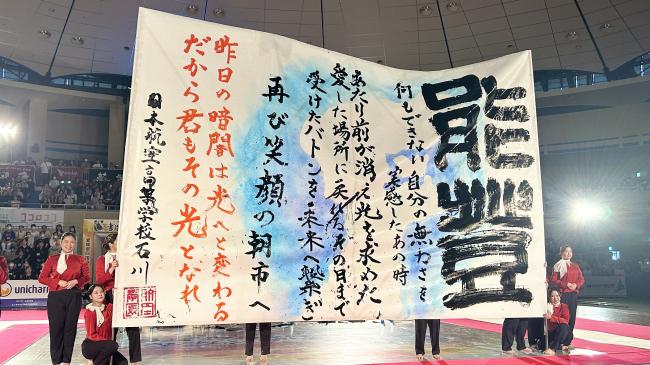 能豊
何もできない自分の無力さを
実感したあの時
あたり前が消え光を求めた
愛した場所に笑顔の日まで
受けたバトンを未来へ繋ぎ
再び笑顔の朝市へ
昨日の暗闇は光へと変わる
だから君もその光となれ
日本航空高等学校石川
ココロコ
unicharm